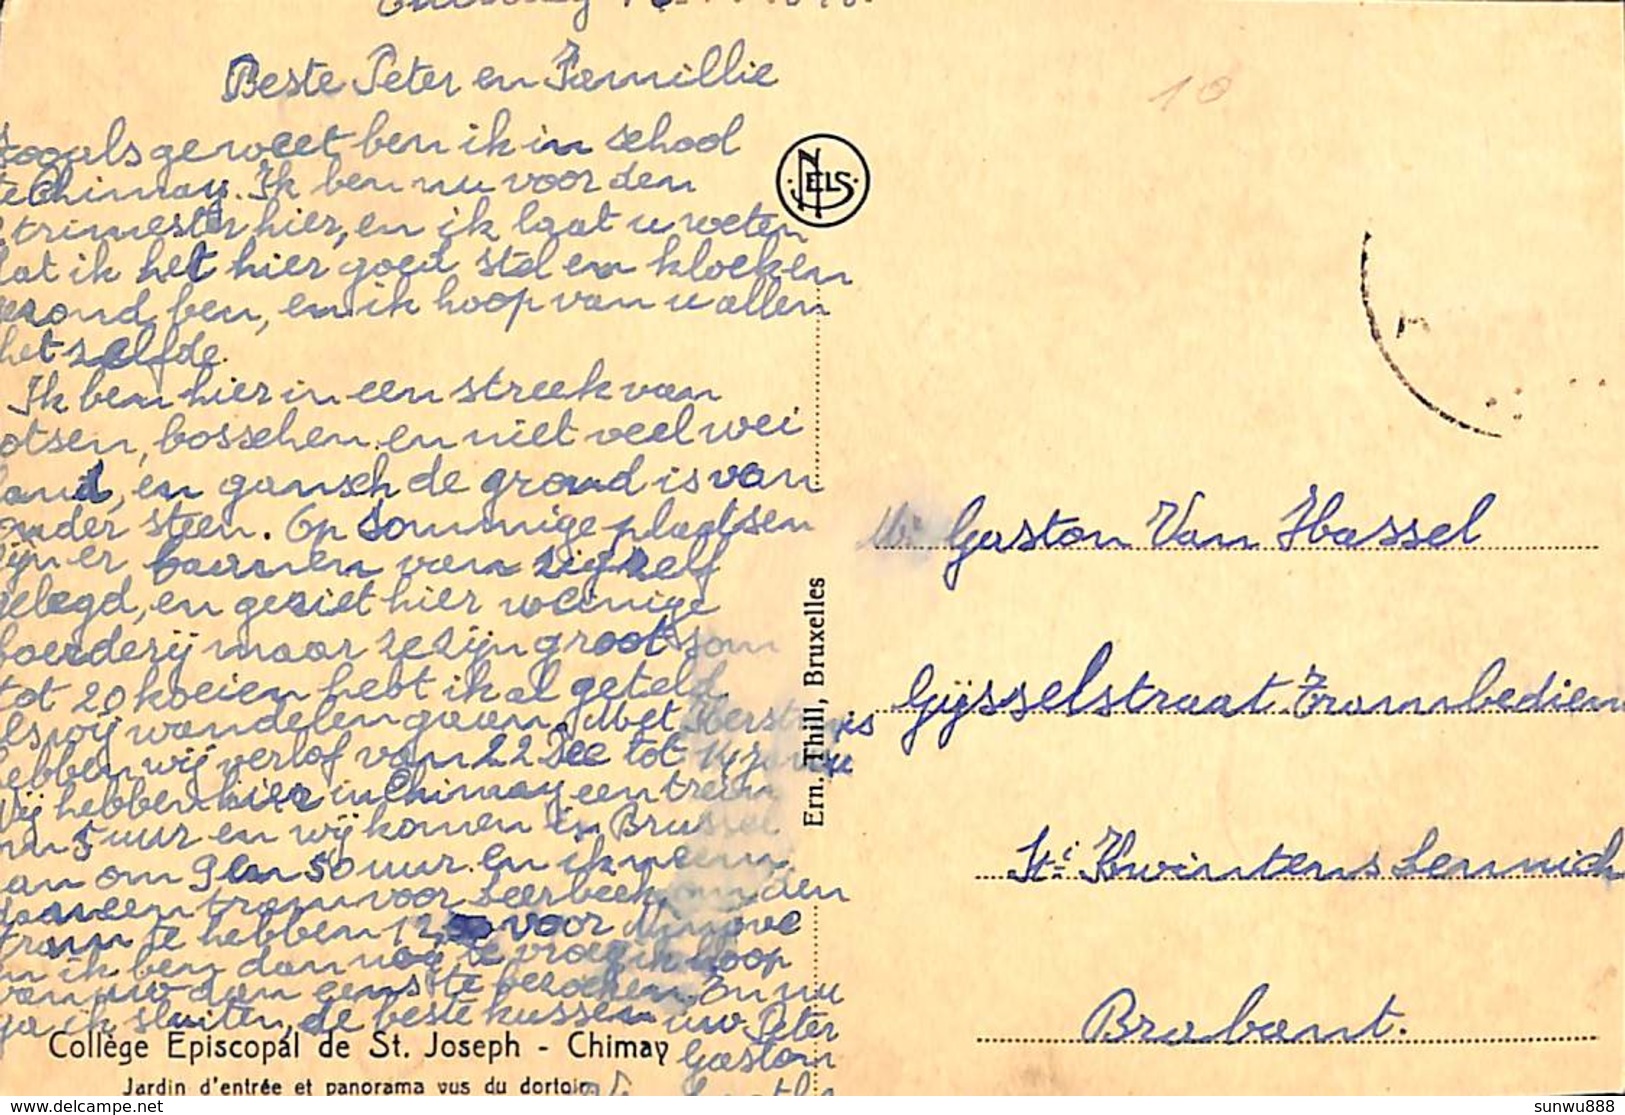 Beste Peter en Famillie
zooals ge weet ben ik in school
te Chimay. Ik ben nu voor den
trimester hier, en ik laat u weten
dat ik het hier goed stel en kloek en
gezond ben, en ik hoop van u allen
het zelfde.
Ik ben hier in een streek van
otsen, bosschen en niet veel wei
land, en gansch de grond is van
onder steen. Op sommige plaatsen
zijn er boomen van zig zelf
gelegd, en ge ziet hier weinige
boerderij maar ze zijn groot som
tot 20 koeien hebt ik al geteld
als wij wandelen gaan. Met Kerstmis
hebben wij verlof van 22 Dec tot
Wij hebben hier in Chimay een trein
om 5 uur en wij komen in Brussel
an om 9 en 50 uur. en ik neem
dan een tram voor Leerbeek om den
tram te hebben 12 voor Ninove
en ik ben dan nog te vroeg ik hoop
van uw dan eens te bezoeken. En nu
ga ik sluiten, de beste kussen uw Peter
Gaston
NELS
Ern. Thill, Bruxelles
Collège Episcopal de St. Joseph - Chimay
Jardin d'entrée et panorama vus du dortoir
10
Mr Gaston Van Hassel
Gijsselstraat Trambedien
St. Kwintens Lennick
Brabant.
sunwu888